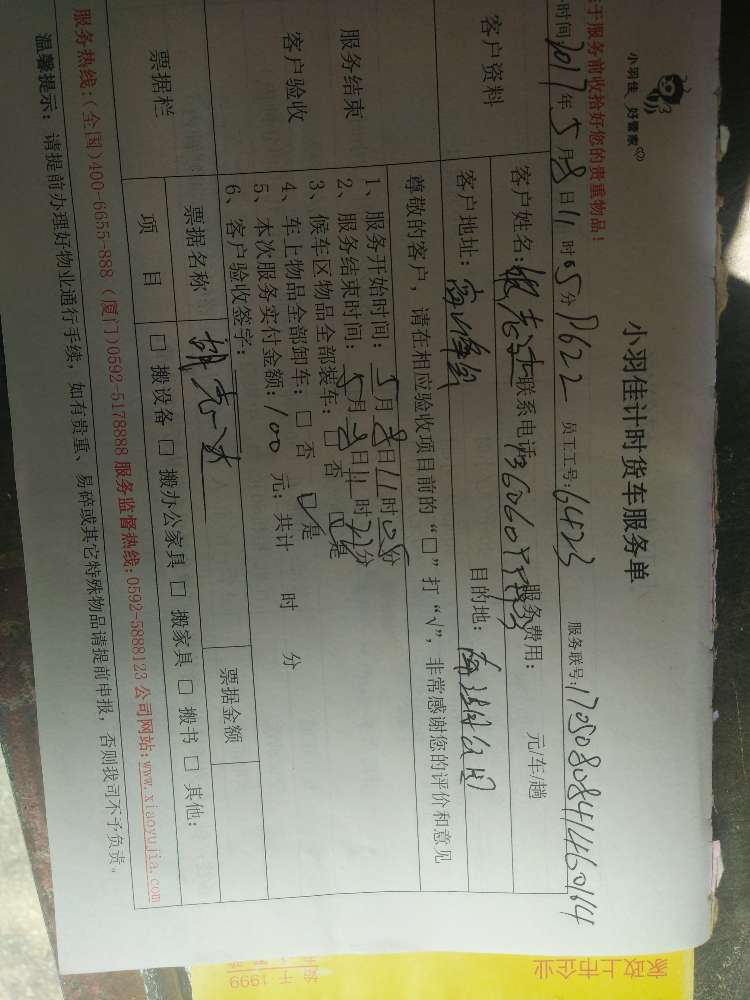 小羽佳 好管家
小羽佳计时货车服务单
于服务前收拾好您的贵重物品！
时间 2017年5月8日11时05分 P622 员工工号：6423 服务联号：1705080841460164
客户资料
客户姓名： 联系电话： 服务费用： 元/车/趟
客户地址： 目的地：
服务结束
客户验收
尊敬的客户，请在相应验收项目前的“□”打“√”，非常感谢您的评价和意见
1、服务开始时间：5月8日11时05分
2、服务结束时间：5月8日11时22分
3、候车区物品全部装车：□否 □是
4、车上物品全部卸车：□否 □是
5、本次服务实付金额：100 元；共计 时 分
6、客户验收签字：
票据栏
票据名称 票据金额
项目 □搬设备 □搬办公家具 □搬家具 □搬书 □其他：
服务热线：(全国)400-6655-888 (厦门)0592-5178888 服务监督热线：0592-5888123 公司网站：www.xiaoyujia.com
温馨提示：请提前办理好物业通行手续，如有贵重、易碎或其它特殊物品请提前申报，否则我司不予负责。
家政上市企业
1999